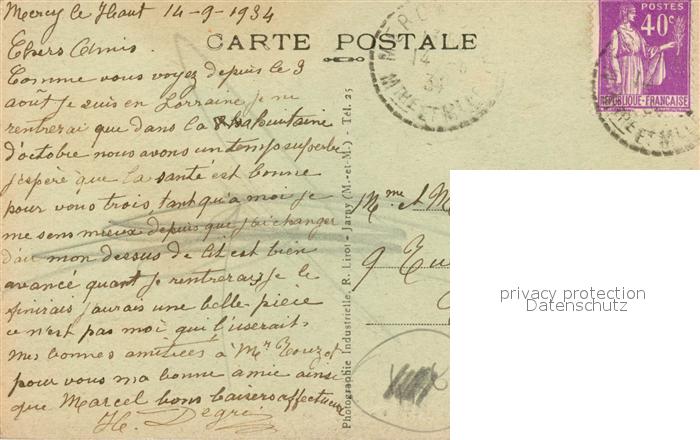 Mercy le Haut 14-9-1934
Chers Amis.
Comme vous voyez depuis le 9
août je suis en Lorraine je ne
rentrerai que dans la quinzaine
d'octobre nous avons un temps superbe
j'espère que la santé est bonne
pour vous trois, tant qu'à moi je
me sens mieux depuis que j'ai changer
d'air mon dessus de lit est bien
avancé quant je rentrerai, je le
finirais j'aurais une belle pièce
ce n'est pas moi qui l'userait.
Mes bonnes amitiées à Mr
pour vous ma bonne amie ainsi
que Marcel bons baisers affectueux
CARTE POSTALE
Photographie Industrielle, R. Lirot - Jarny (M.-et-M.) - Tél. 25
POSTES
40c
REPUBLIQUE-FRANÇAISE
14
34
Mme et M
9
privacy protection
Datenschutz